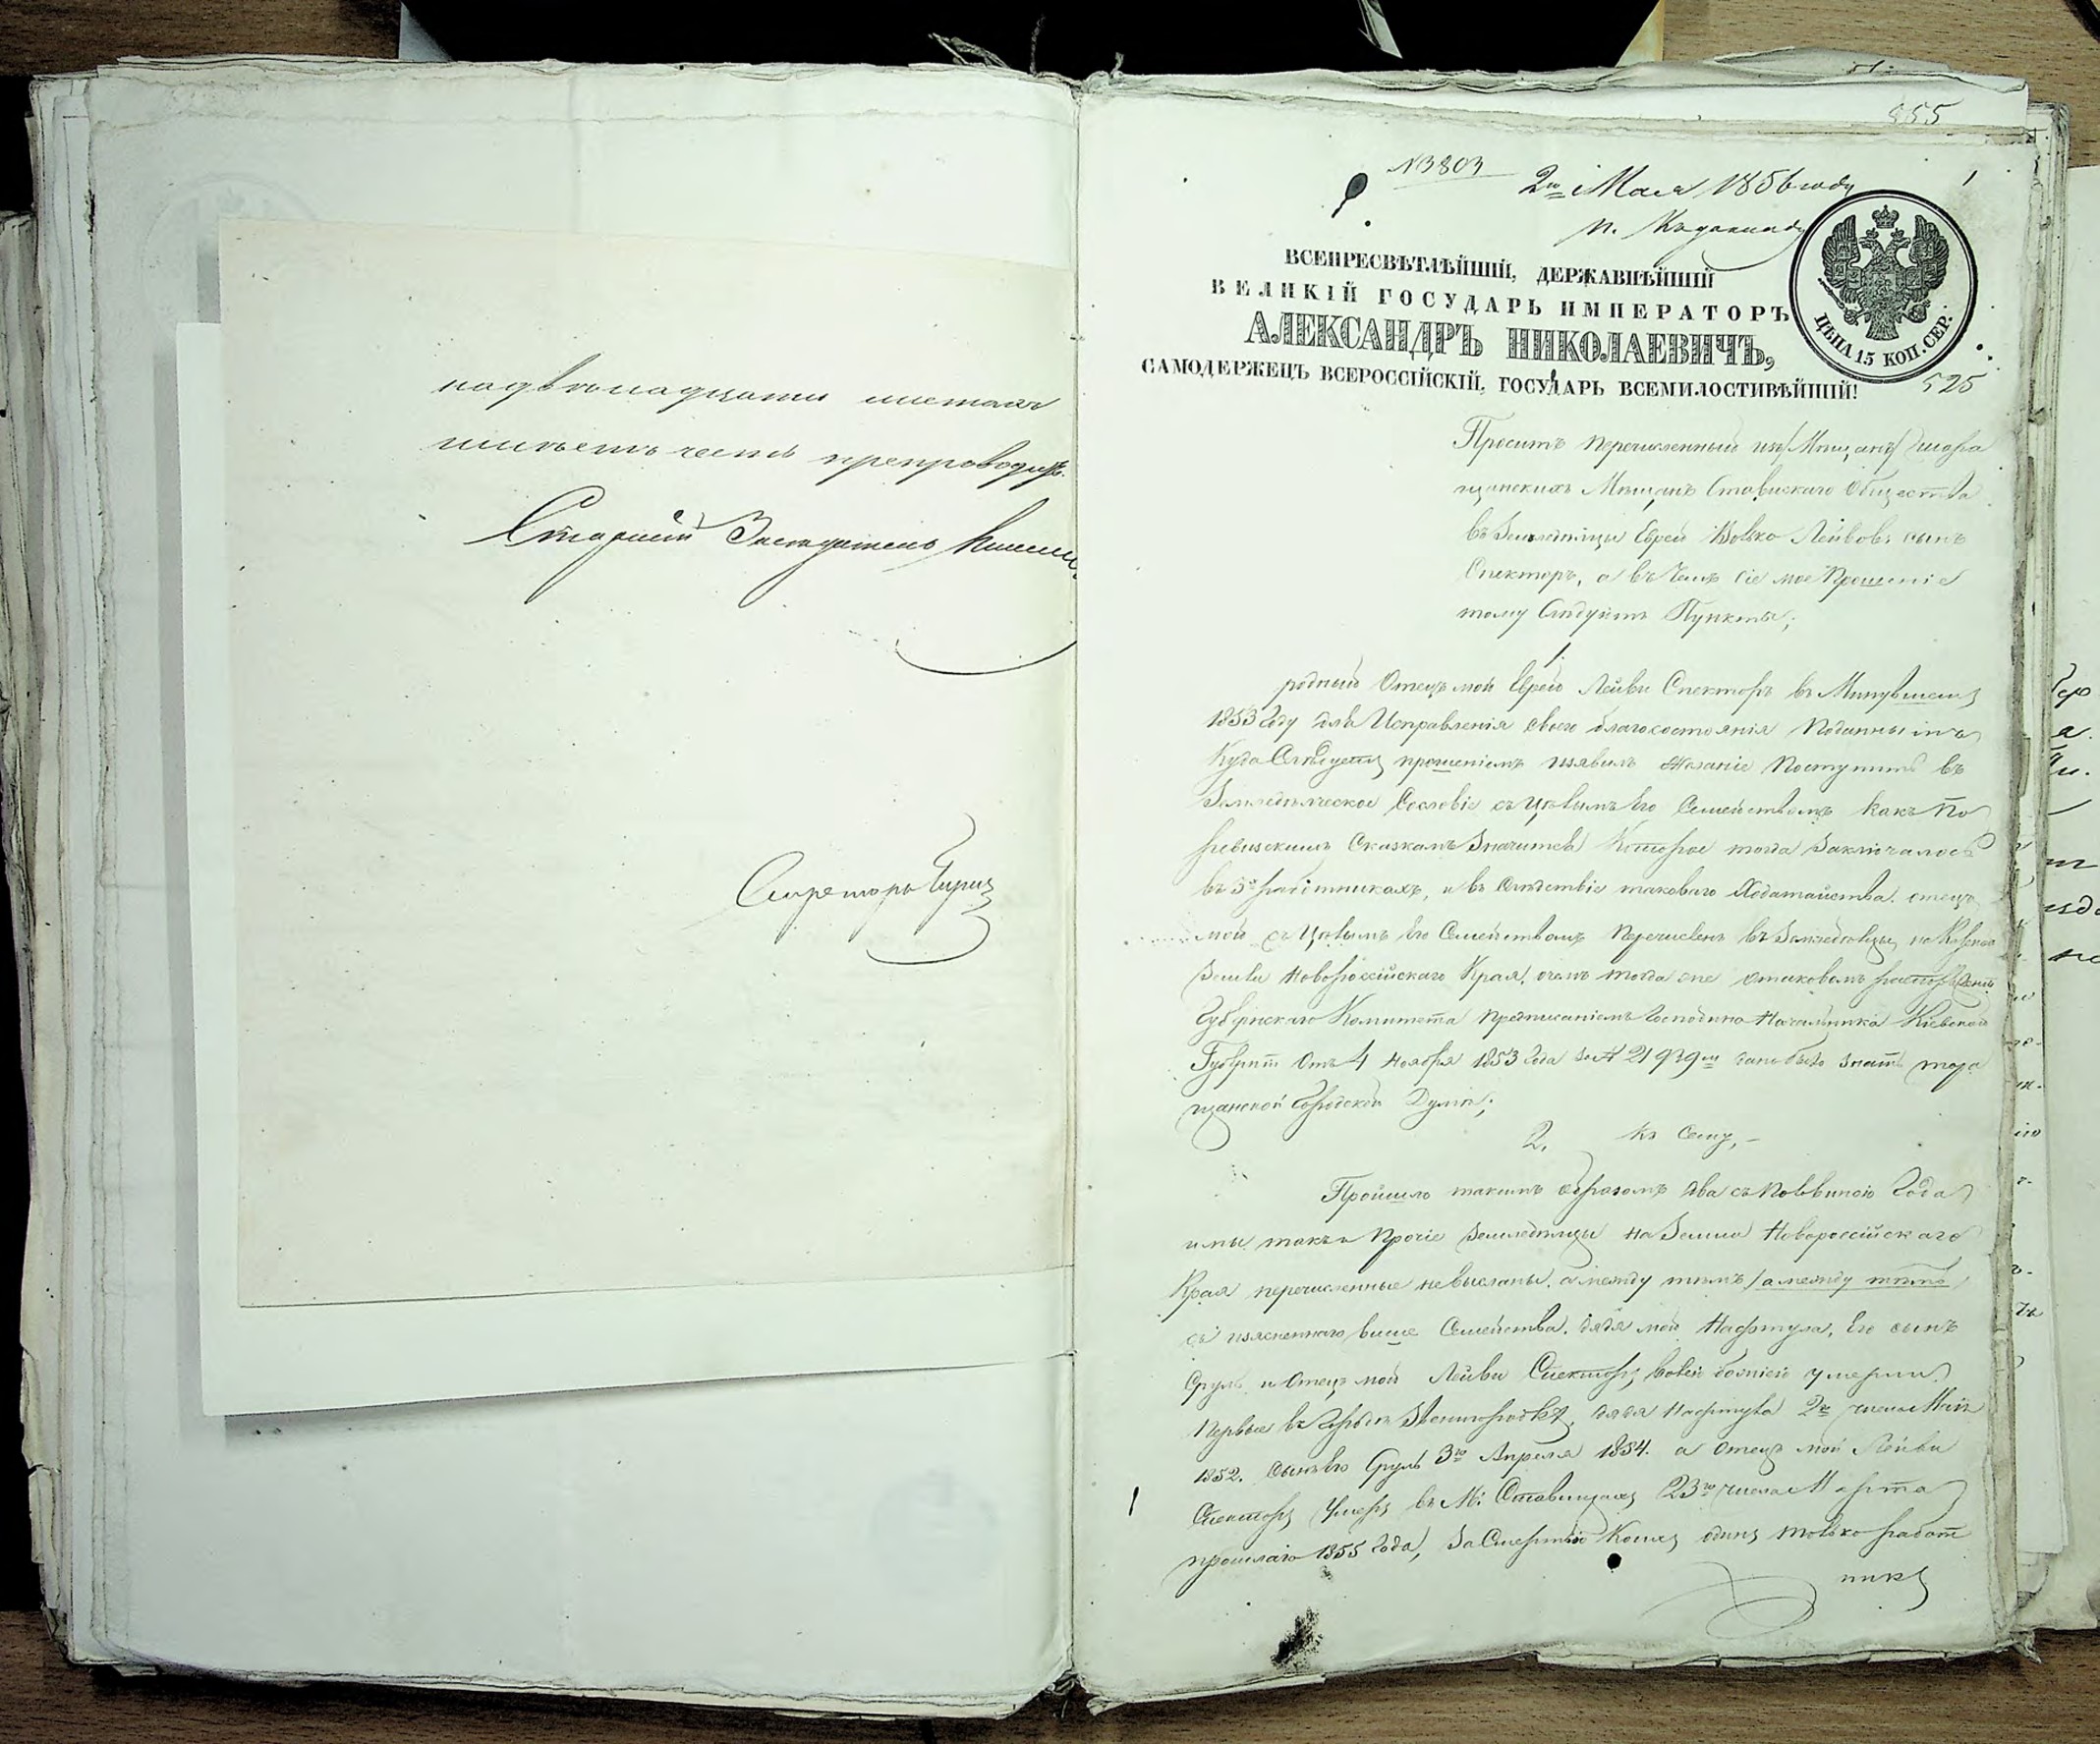 на двѣнадцати листахъ
имѣетъ честь препроводить.
Старшій Засѣдатель
Секретарь
855
№3803
2го Мая 1856 году
ВСЕПРЕСВѢТЛѢЙШІЙ, ДЕРЖАВНѢЙШІЙ
ВЕЛИКІЙ ГОСУДАРЬ ИМПЕРАТОРЪ
АЛЕКСАНДРЪ НИКОЛАЕВИЧЪ,
САМОДЕРЖЕЦЪ ВСЕРОССІЙСКІЙ, ГОСУДАРЬ ВСЕМИЛОСТИВѢЙШІЙ!
ЦѢНА 15 КОП. СЕР.
525
Проситъ перечисленный изъ /Мѣщанъ/ тара
щанскихъ Мѣщанъ Ставискаго Общества
въ Земледѣльцы Еврей Волько Лейбов. сынъ
Спекторъ, а въ чемъ сіе мое Прошеніе
тому Слѣдуютъ Пункты;
1.
родный Отецъ мой Еврей Лейби Спекторъ въ Минувшемъ
1853 Году для Исправленія своего благосостоянія Поданнымъ
Куда Слѣдуетъ прошеніемъ изявилъ желаніе Поступить въ
Земледѣльческое Сословіе съ Цѣлымъ Его Семействомъ какъ По
ревизскимъ Сказкамъ Значится Которое тогда Заключалось
въ 3х работникахъ, и въ слѣдствіе таковаго Ходатайства. отецъ
мой съ Цѣлымъ Его Семействомъ Перечисленъ въ Земледѣльцы на
Земли Новороссійскаго Края, о чемъ тогда еще о таковомъ
Губернскаго Комитета предписаніемъ Господина Начальника Кіевской
Губерніи Отъ 4 ноября 1853 Года за № 21939м дано было знать тара
щанской Городской Думѣ;
2. Къ Сему,-
Прошло такимъ образомъ два съ Половиною Года
и мы такъ и прочіе Земледѣльцы на Земли Новороссійскаго
Края перечисленные невысланы. а между тѣмъ /а между тѣмъ/
съ изясненнаго выше Семейства. дядя мой Нафтула, Его сынъ
Сруль и Отецъ мой Лейби Спекторъ волею божіею умерли.
Первые въ Городѣ Звенигородкѣ, дядя Нафтула 2го числа Маія
1852. сынъ Его Сруль 3го Апреля 1854. а Отецъ мой Лейби
Спекторъ Умеръ въ М: Ставищахъ 23го числа Марта
прошлаго 1855 Года, За Смертію Коихъ одинъ только работ
никъ